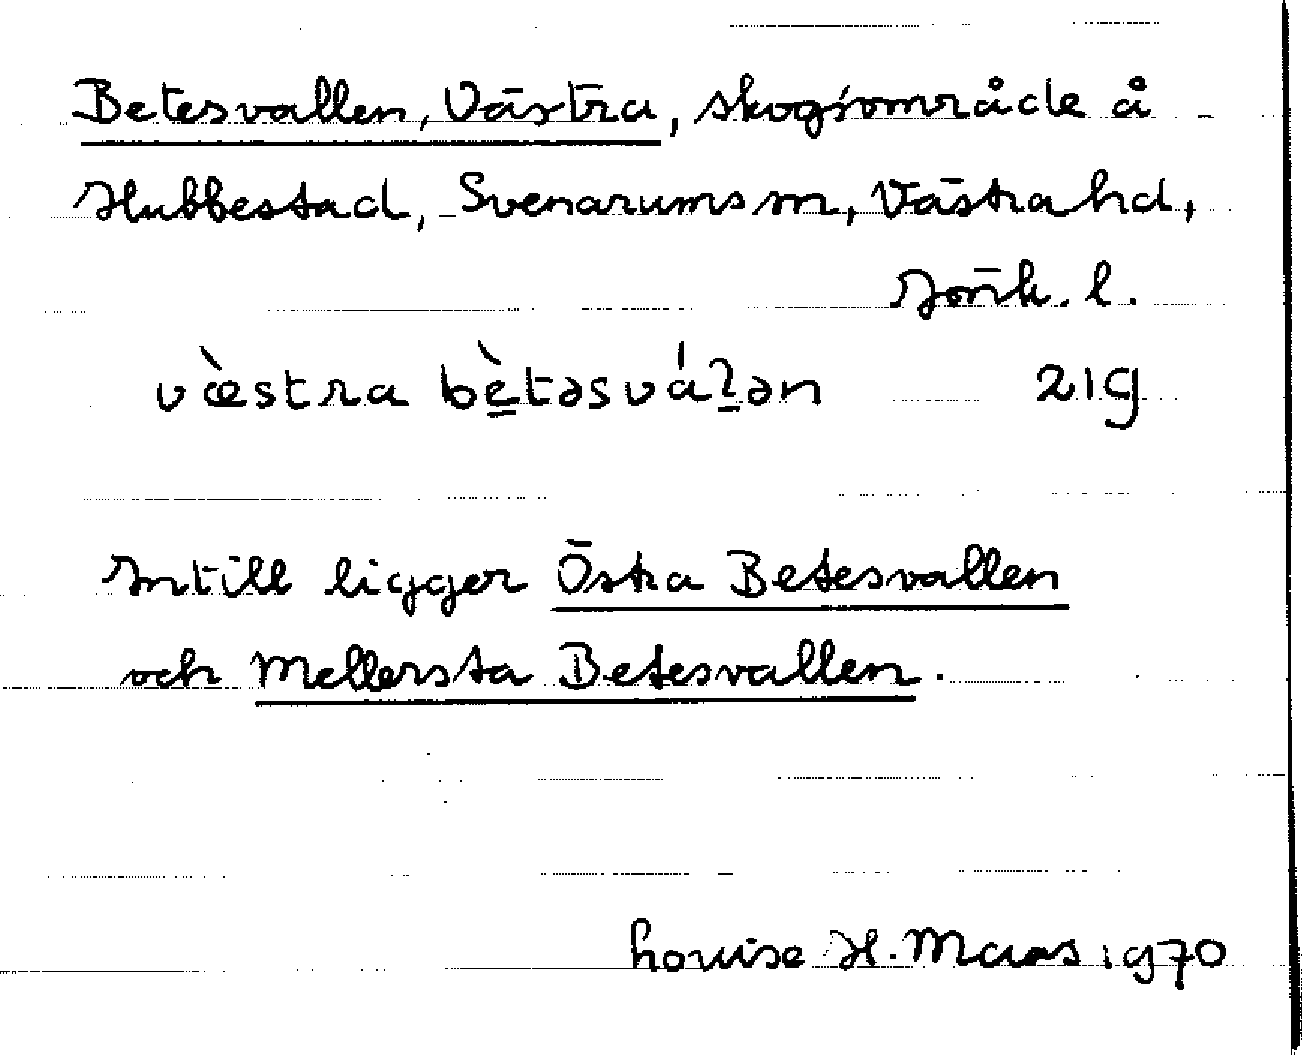 Betesvallen, Västra, skogsområde å
Hubbestad, Svenarums sn, Västra hd,
Jönk. l.
væ̀stra bè̠təsváʅ̠ən 219
Intill ligger Östra Betesvallen
och Mellersta Betesvallen.
Louise H. Maas 1970